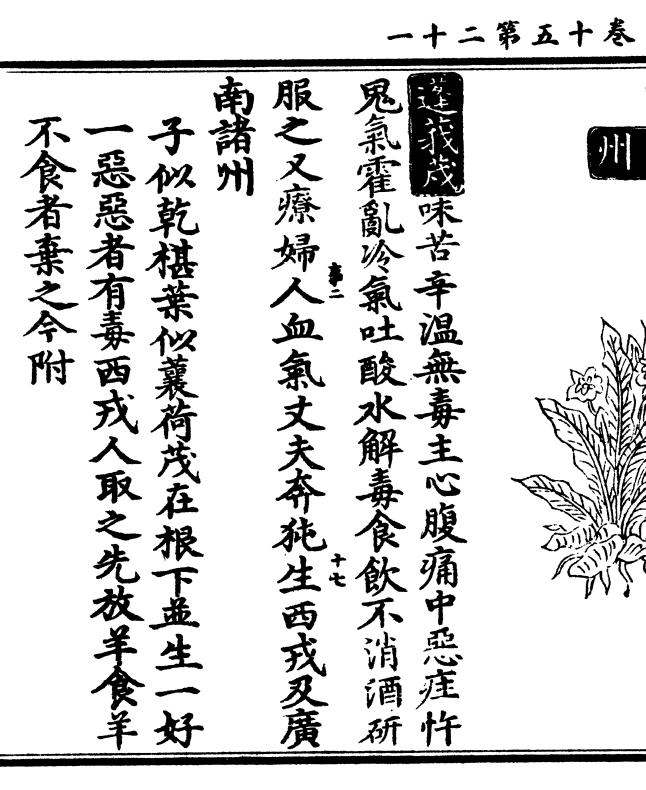 卷十五第二十一
州
蓬莪茂味苦辛温無毒主心腹痛中惡疰忤
鬼氣霍亂冷氣吐酸水解毒食飲不消酒研
服之又療婦人血氣丈夫奔㹠生西戎及廣
事二
十七
南諸州
子似乾椹葉似蘘荷茂在根下並生一好
一惡惡者有毒西戎人取之先放羊食羊
不食者棄之今附